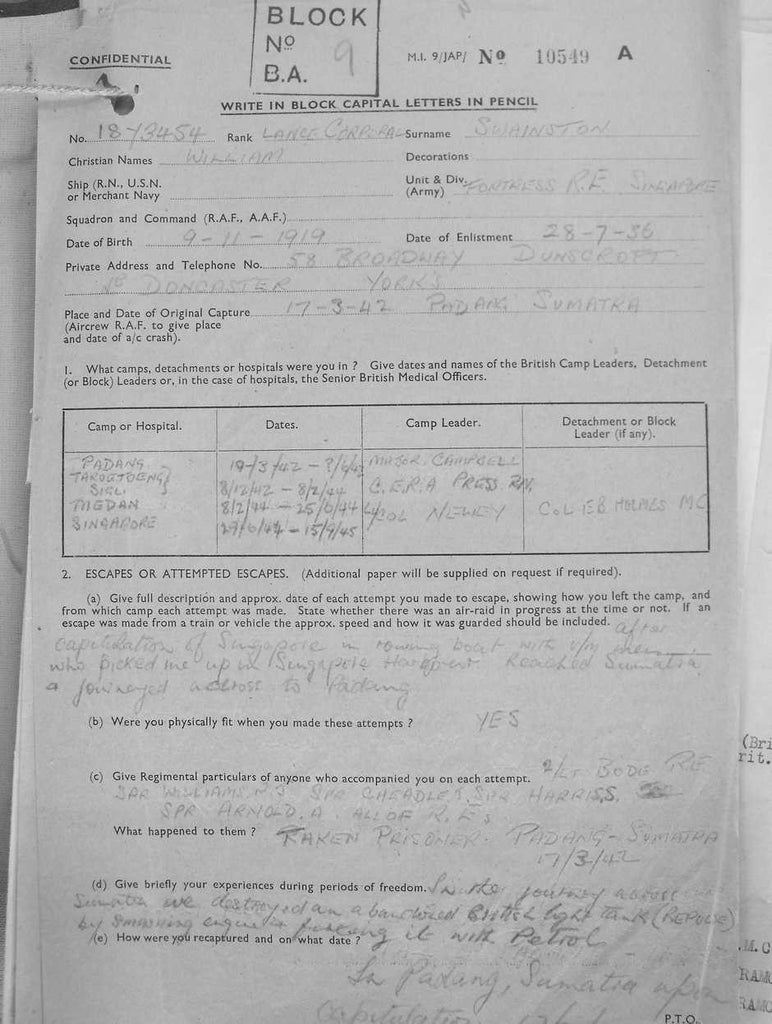 BLOCK
No
B.A. 9
CONFIDENTIAL
M.I. 9/JAP/ No 10549 A
WRITE IN BLOCK CAPITAL LETTERS IN PENCIL
No. Rank LANCE CORPORAL Surname SWAINSTON
Christian Names WILLIAM Decorations
Ship (R.N., U.S.N. or Merchant Navy Unit & Div. (Army) FORTRESS R.E. SINGAPORE
Squadron and Command (R.A.F., A.A.F.)
Date of Birth 9-11-1919 Date of Enlistment 28-7-36
Private Address and Telephone No. 58 BROADWAY DUNSCROFT
Nr DONCASTER YORKS
Place and Date of Original Capture 17-3-42 PADANG SUMATRA
(Aircrew R.A.F. to give place
and date of a/c crash).
1. What camps, detachments or hospitals were you in ? Give dates and names of the British Camp Leaders, Detachment
(or Block) Leaders or, in the case of hospitals, the Senior British Medical Officers.
Camp or Hospital. Dates. Camp Leader. Detachment or Block
Leader (if any).
PADANG 19/3/42 - MAJOR CAMPBELL
SIGLI 8/12/42 - 8/2/44 C.E.R.A PRESS R.N.
MEDAN 8/2/44 - 25/6/44 Lt/COL NEWEY COL EB HOLMES MC
SINGAPORE 29/6/44 - 15/9/45
2. ESCAPES OR ATTEMPTED ESCAPES. (Additional paper will be supplied on request if required).
(a) Give full description and approx. date of each attempt you made to escape, showing how you left the camp, and
from which camp each attempt was made. State whether there was an air-raid in progress at the time or not. If an
escape was made from a train or vehicle the approx. speed and how it was guarded should be included. after
capitulation of Singapore in rowing boat with u/m men
who picked me up in Singapore Harbour. Reached Sumatra
& journeyed across to Padang
(b) Were you physically fit when you made these attempts ? YES
(c) Give Regimental particulars of anyone who accompanied you on each attempt. 2/LT BODE RE
SPR WILLIAMS SPR CHEADLE SPR HARRIS.S.
SPR ARNOLD. A. ALL OF R.E's
What happened to them ? TAKEN PRISONER. PADANG - SUMATRA
17/3/42
(d) Give briefly your experiences during periods of freedom. In the journey across
Sumatra we destroyed an abandoned British light tank (REPULSE)
by smashing engine & it with Petrol
(e) How were you recaptured and on what date ?
In Padang, Sumatra upon
Capitulation
P.T.O.
(Bri
rit.
.M.C
RAMC
RAMC